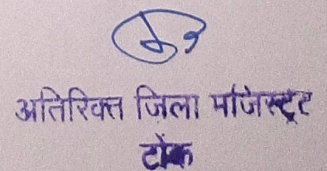 अतिरिक्त जिला मजिस्ट्रट
टोंक